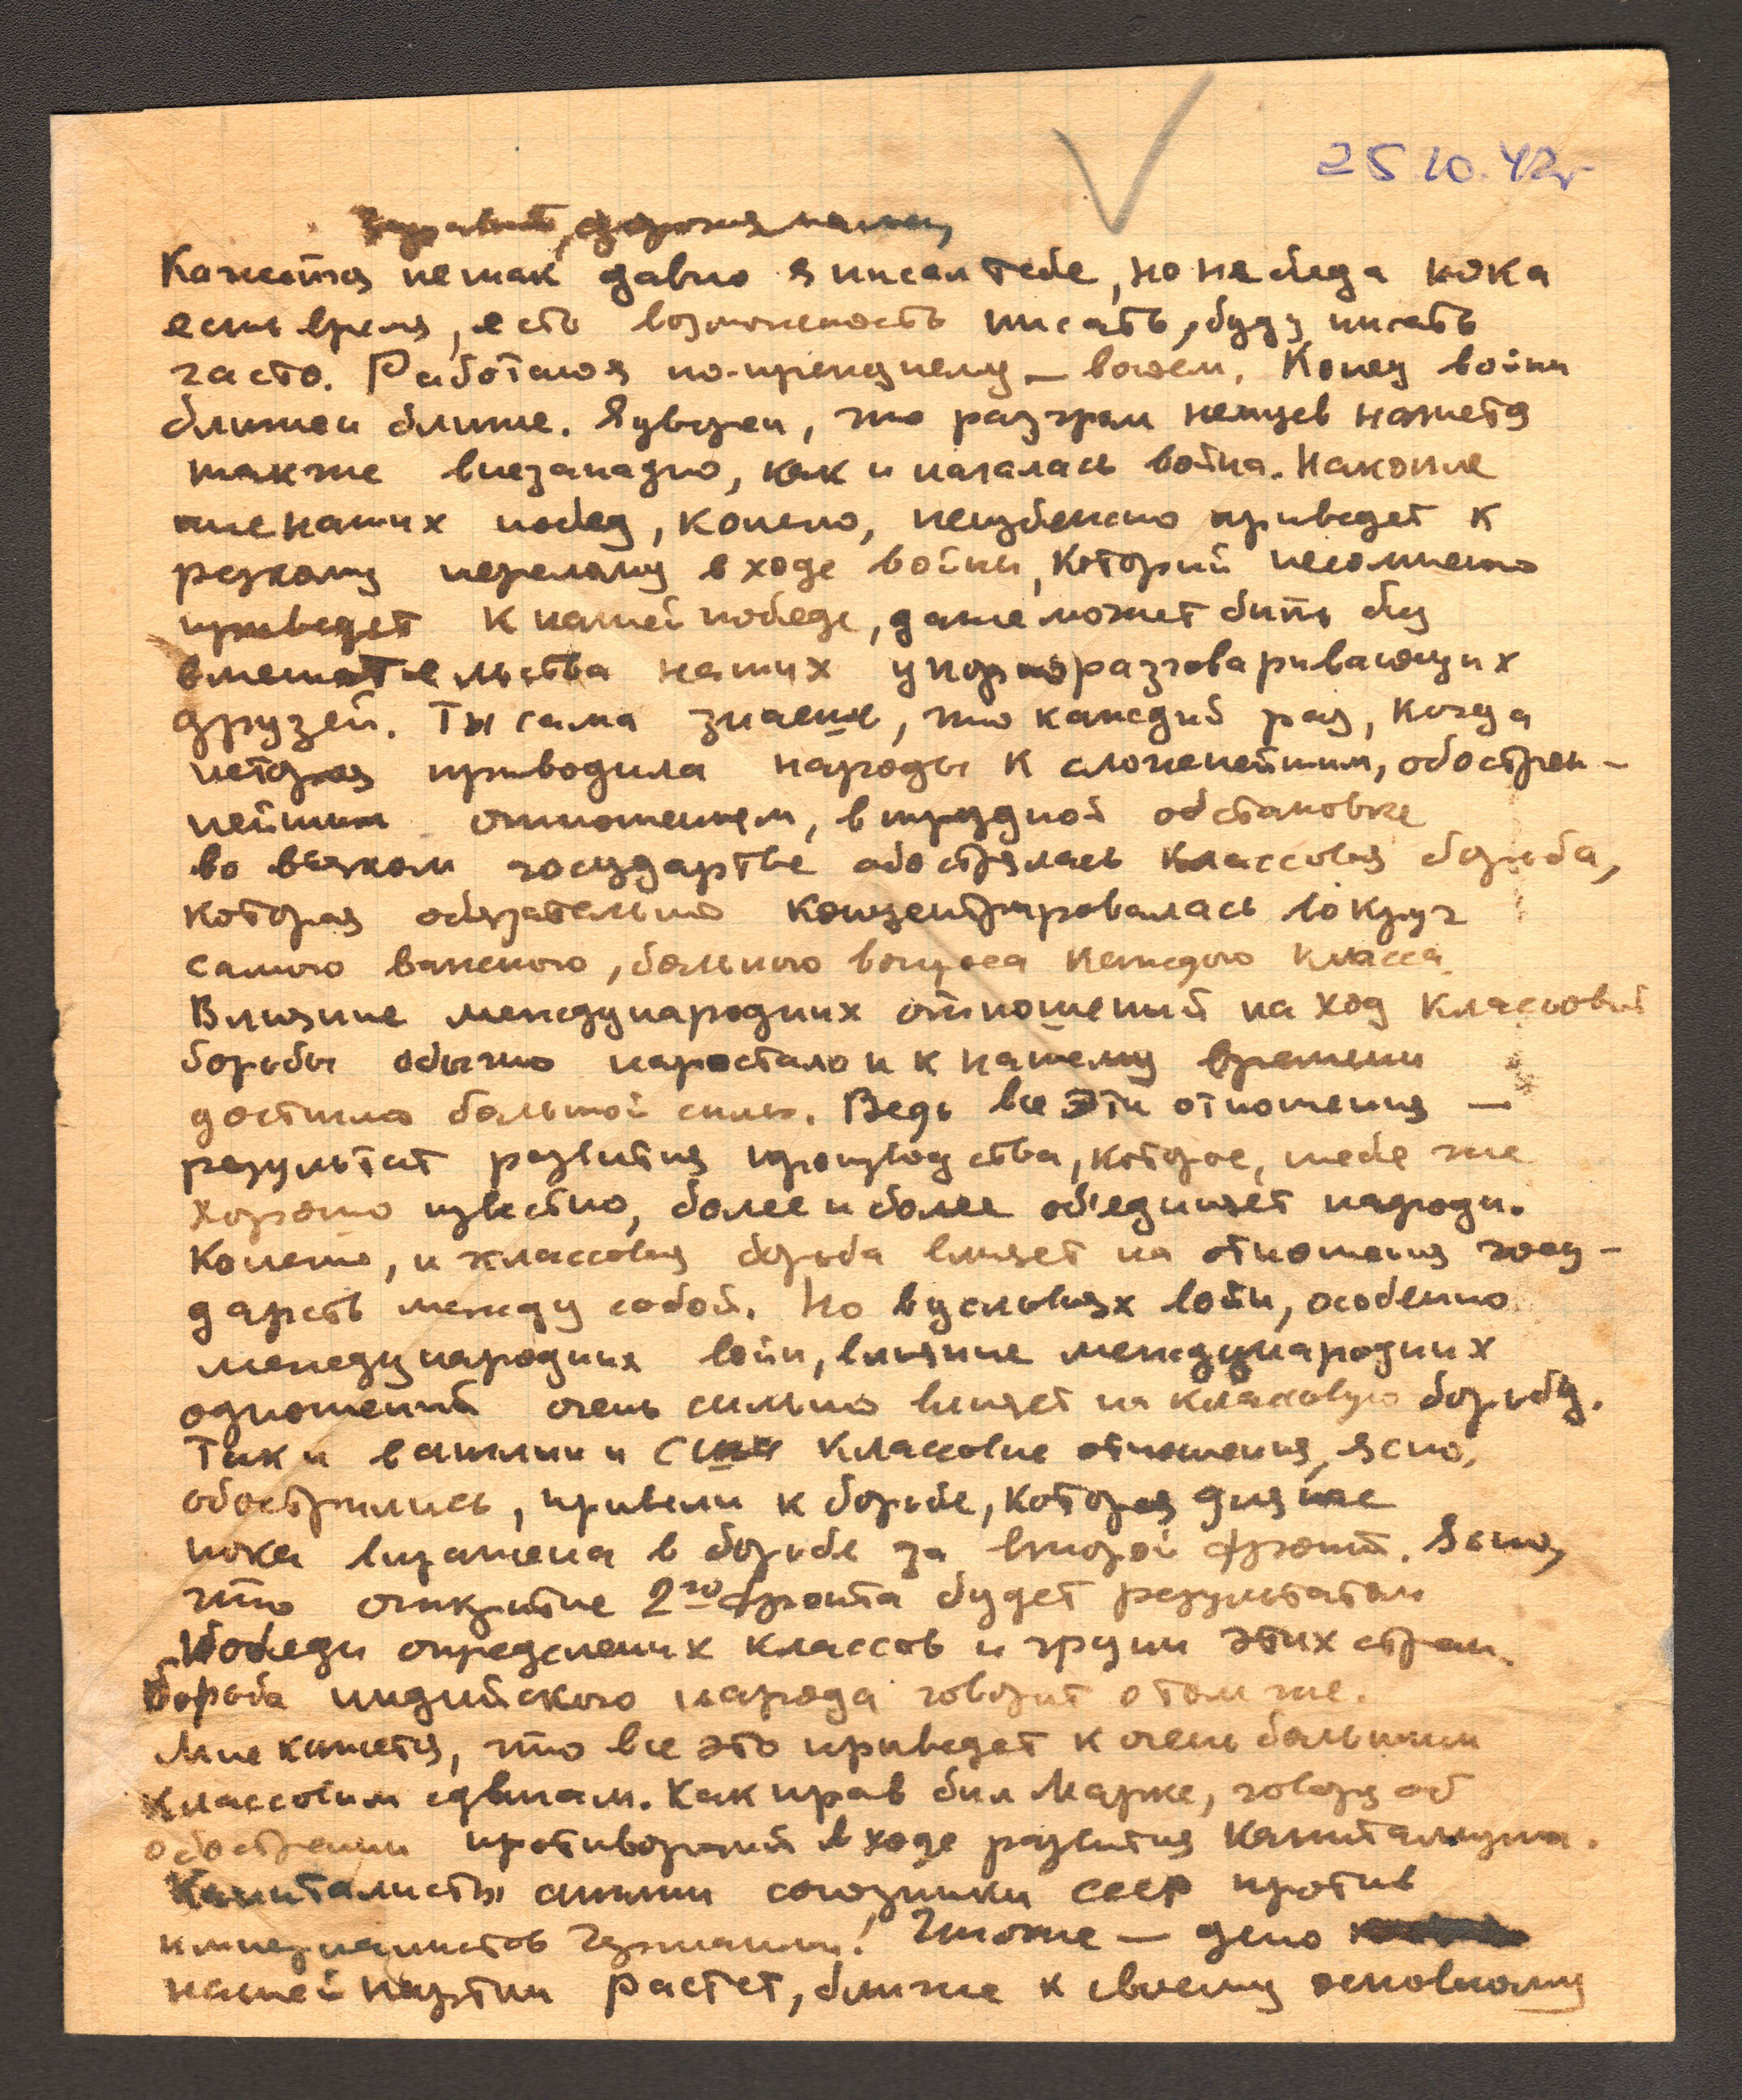 25.10.42г
Здравствуй, дорогая мама,
Кажется не так давно я писал тебе, но не беда пока
есть время, есть возможность писать, буду писать
часто. Работаю по-прежнему — воюем. Конец войны
ближе и ближе. Я уверен, что разгром немцев начнется
также внезапно, как и началась война. Накопле
ние наших побед, конечно, неизбежно приведет к
резкому перелому в ходе войны, который несомненно
приведет к нашей победе, даже может быть без
вмешательства наших упорно разговаривающих
друзей. Ты сама знаешь, что каждый раз, когда
история приводила народы к сложнейшим, обострен-
нейшим отношениям, в трудной обстановке
во всяком государстве обострялась классовая борьба,
которая обязательно концентрировалась вокруг
самого важного, больного вопроса каждого класса.
Влияние международных отношений на ход классовой
борьбы обычно наростало и к нашему времени
достигло большой силы. Ведь все эти отношения —
результат развития производства, которое, тебе же
хорошо известно, более и более об'единяет народы.
Конечно, и классовая борьба влияет на отношения госу-
дарств между собой. Но в условиях войны, особенно
международных войн, влияние международных
одношений очень сильно влияет на классовую борьбу.
Так и в англии и США классовые отношения, ясно,
обострились, привели к борьбе, которая для
пока выражена в борьбе за второй фронт. Ясно,
что открытие 2го фронта будет результатом
победы определеных классов и групп этих стран.
Борьба индийского народа говорит о том же.
Мне кажется, что все это приведет к очень большим
классовым сдвигам. Как прав был Маркс, говоря об
обострении противоречий в ходе развития капитализма.
Капиталисты англии союзники СССР против
империалистов Германии! Итоже — дело
нашей партии растет, ближе к своему основному